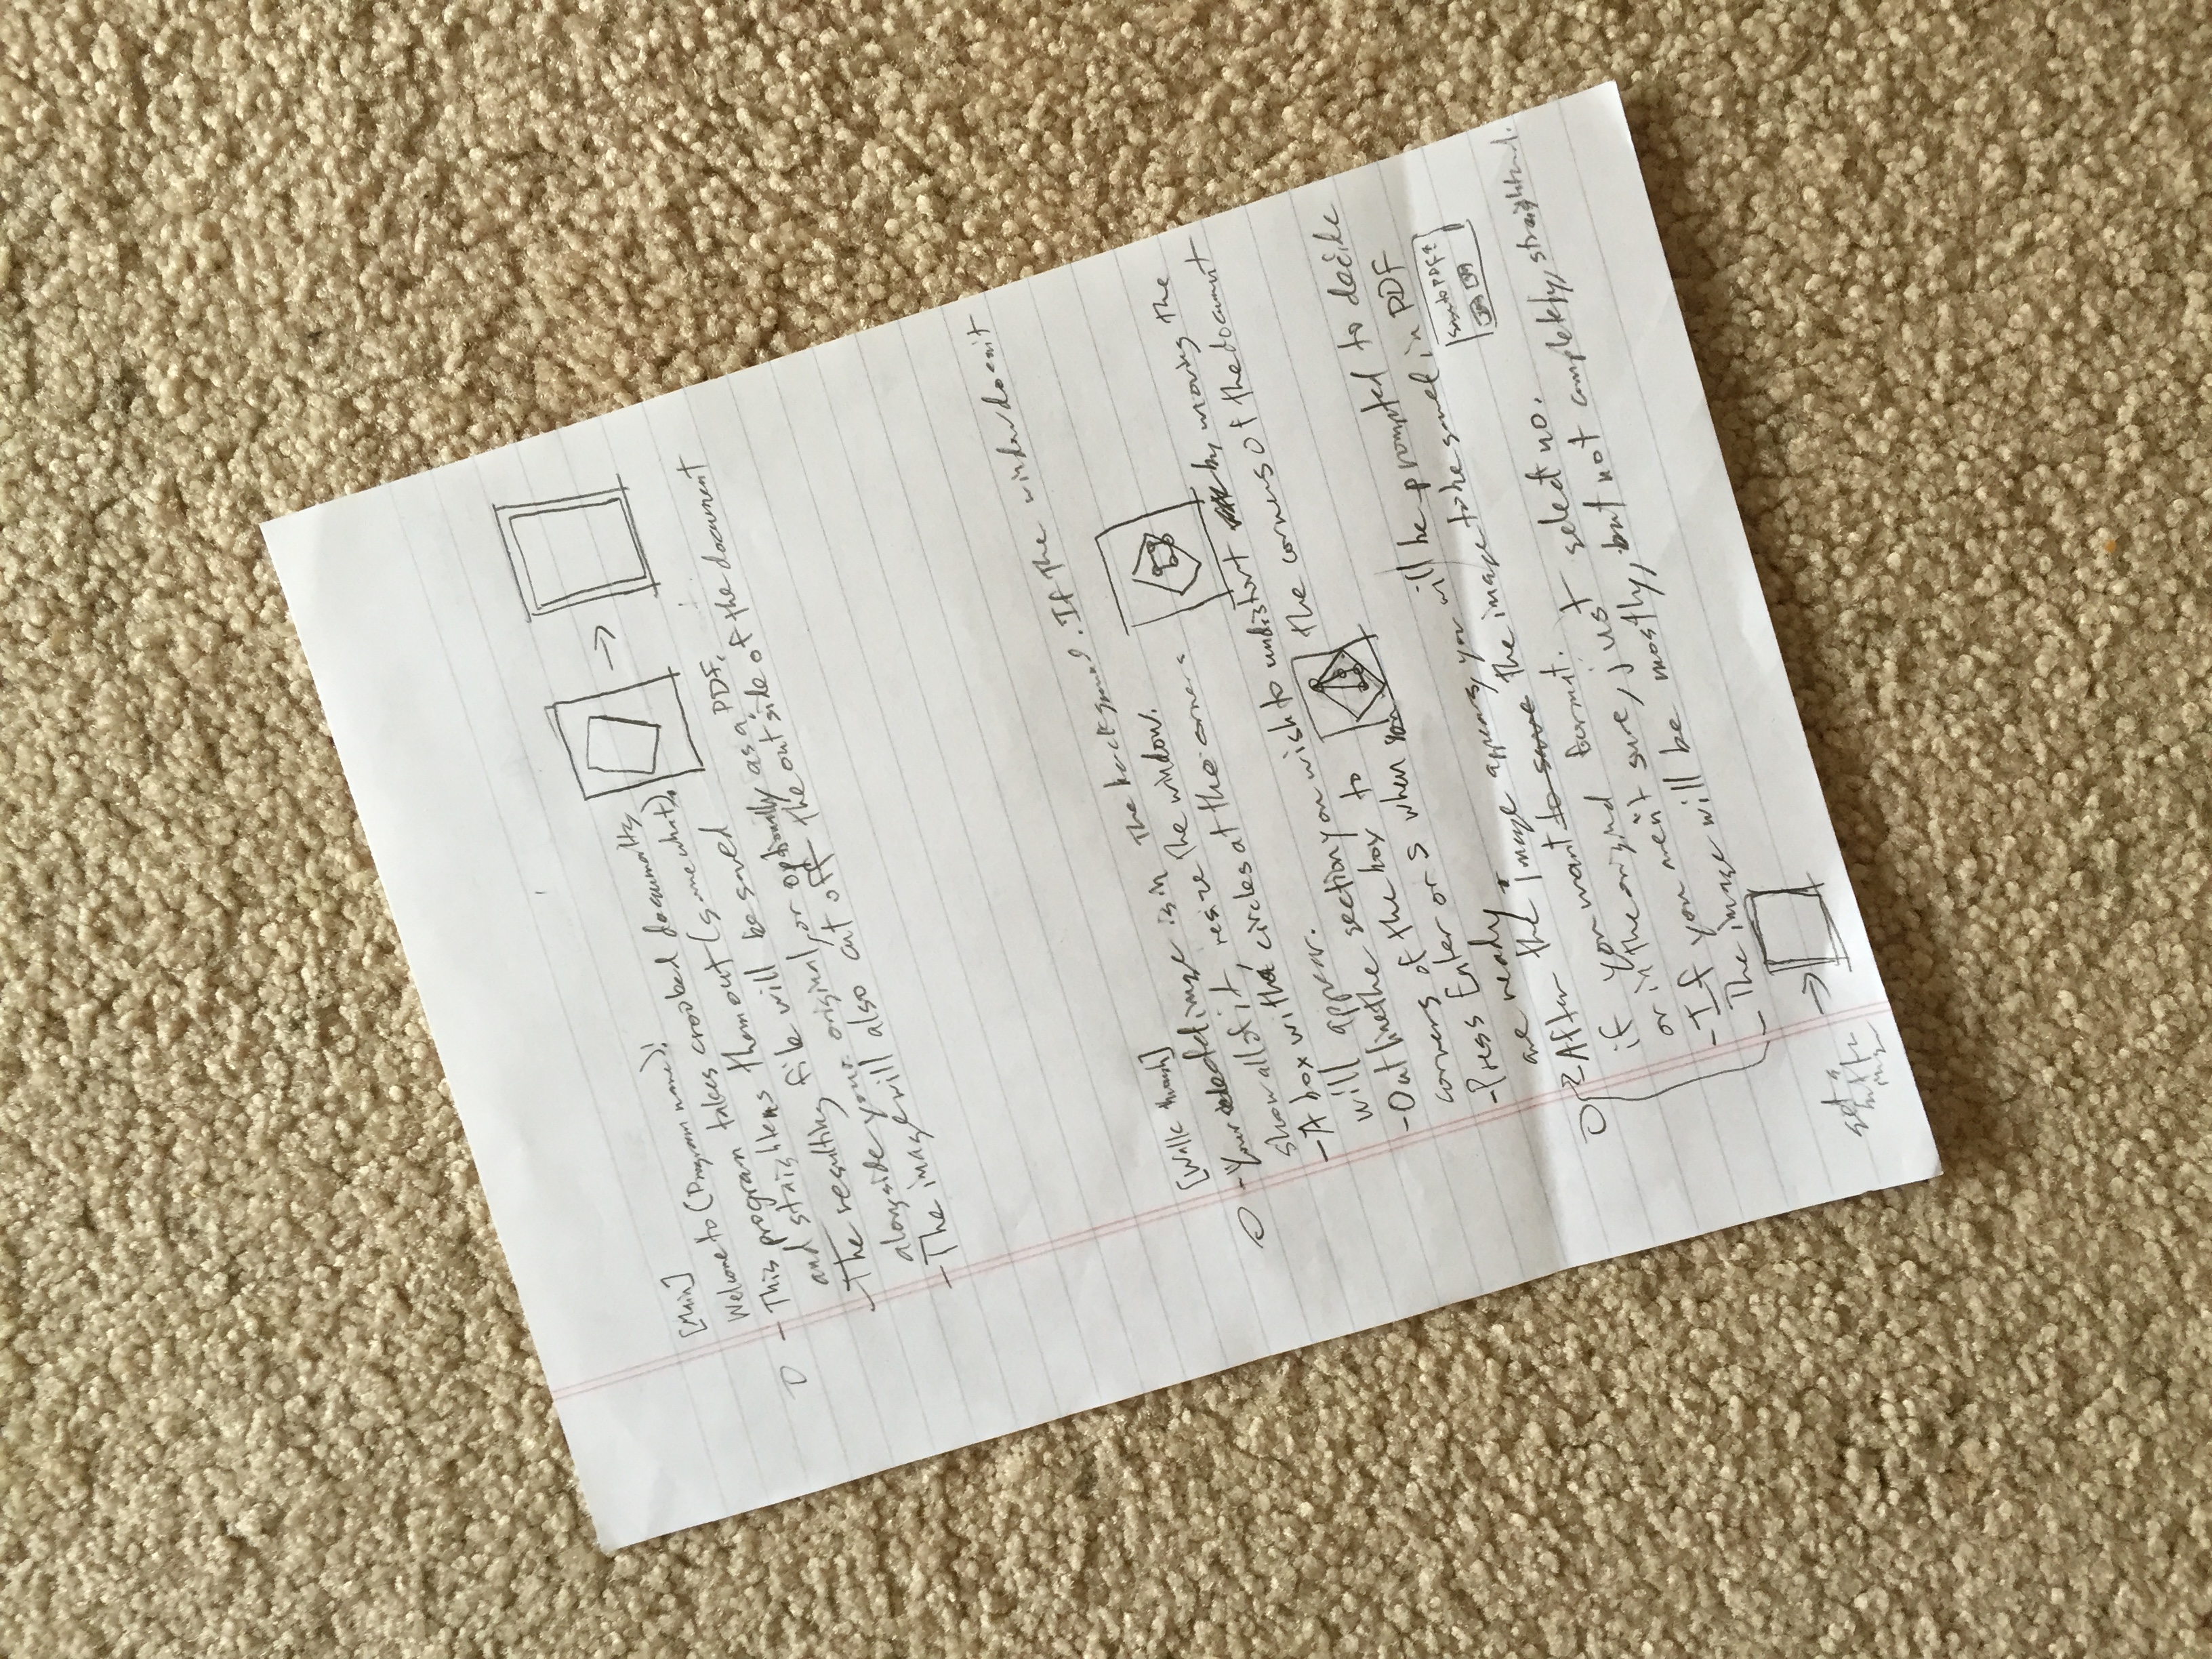 [Main]
Welcome to (Program name)!
- This program takes crooked documents,
and staightens them out (somewhat).
- The resulting file will be saved
alongside your original, or optionally as a PDF.
- The image will also cut off the outside of the document
[Walk through]
- Your selected image is in the background. If the window doesn't
show all of it, resize the window.
- A box with circles at the corners
will appear.
- Outline the section you wish to undistort by moving the
corners of the box to the corners of the document
- Press Enter or s when you
are ready.
- After the image appears, you will be prompted to decide
if you want to save the image to be saved in PDF
or in the original format.
Save to PDF?
- If you aren't sure, just select no.
- The image will be mostly, but not completely, straightened.